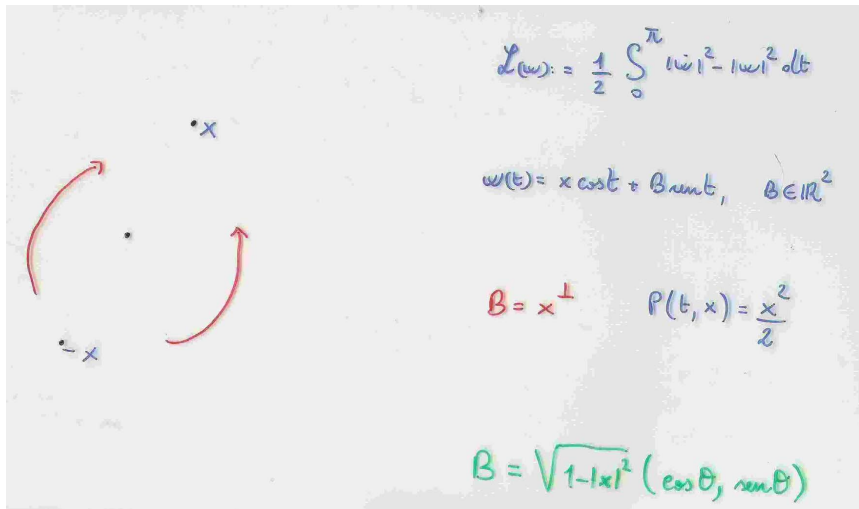 L(w) := 1/2 ∫₀^π |ẇ|² - |w|² dt
x
w(t) = x cos t + B sen t, B ∈ ℝ²
B = x^⊥ P(t, x) = x²/2
- x
B = √(1-|x|²) (cos θ, sen θ)